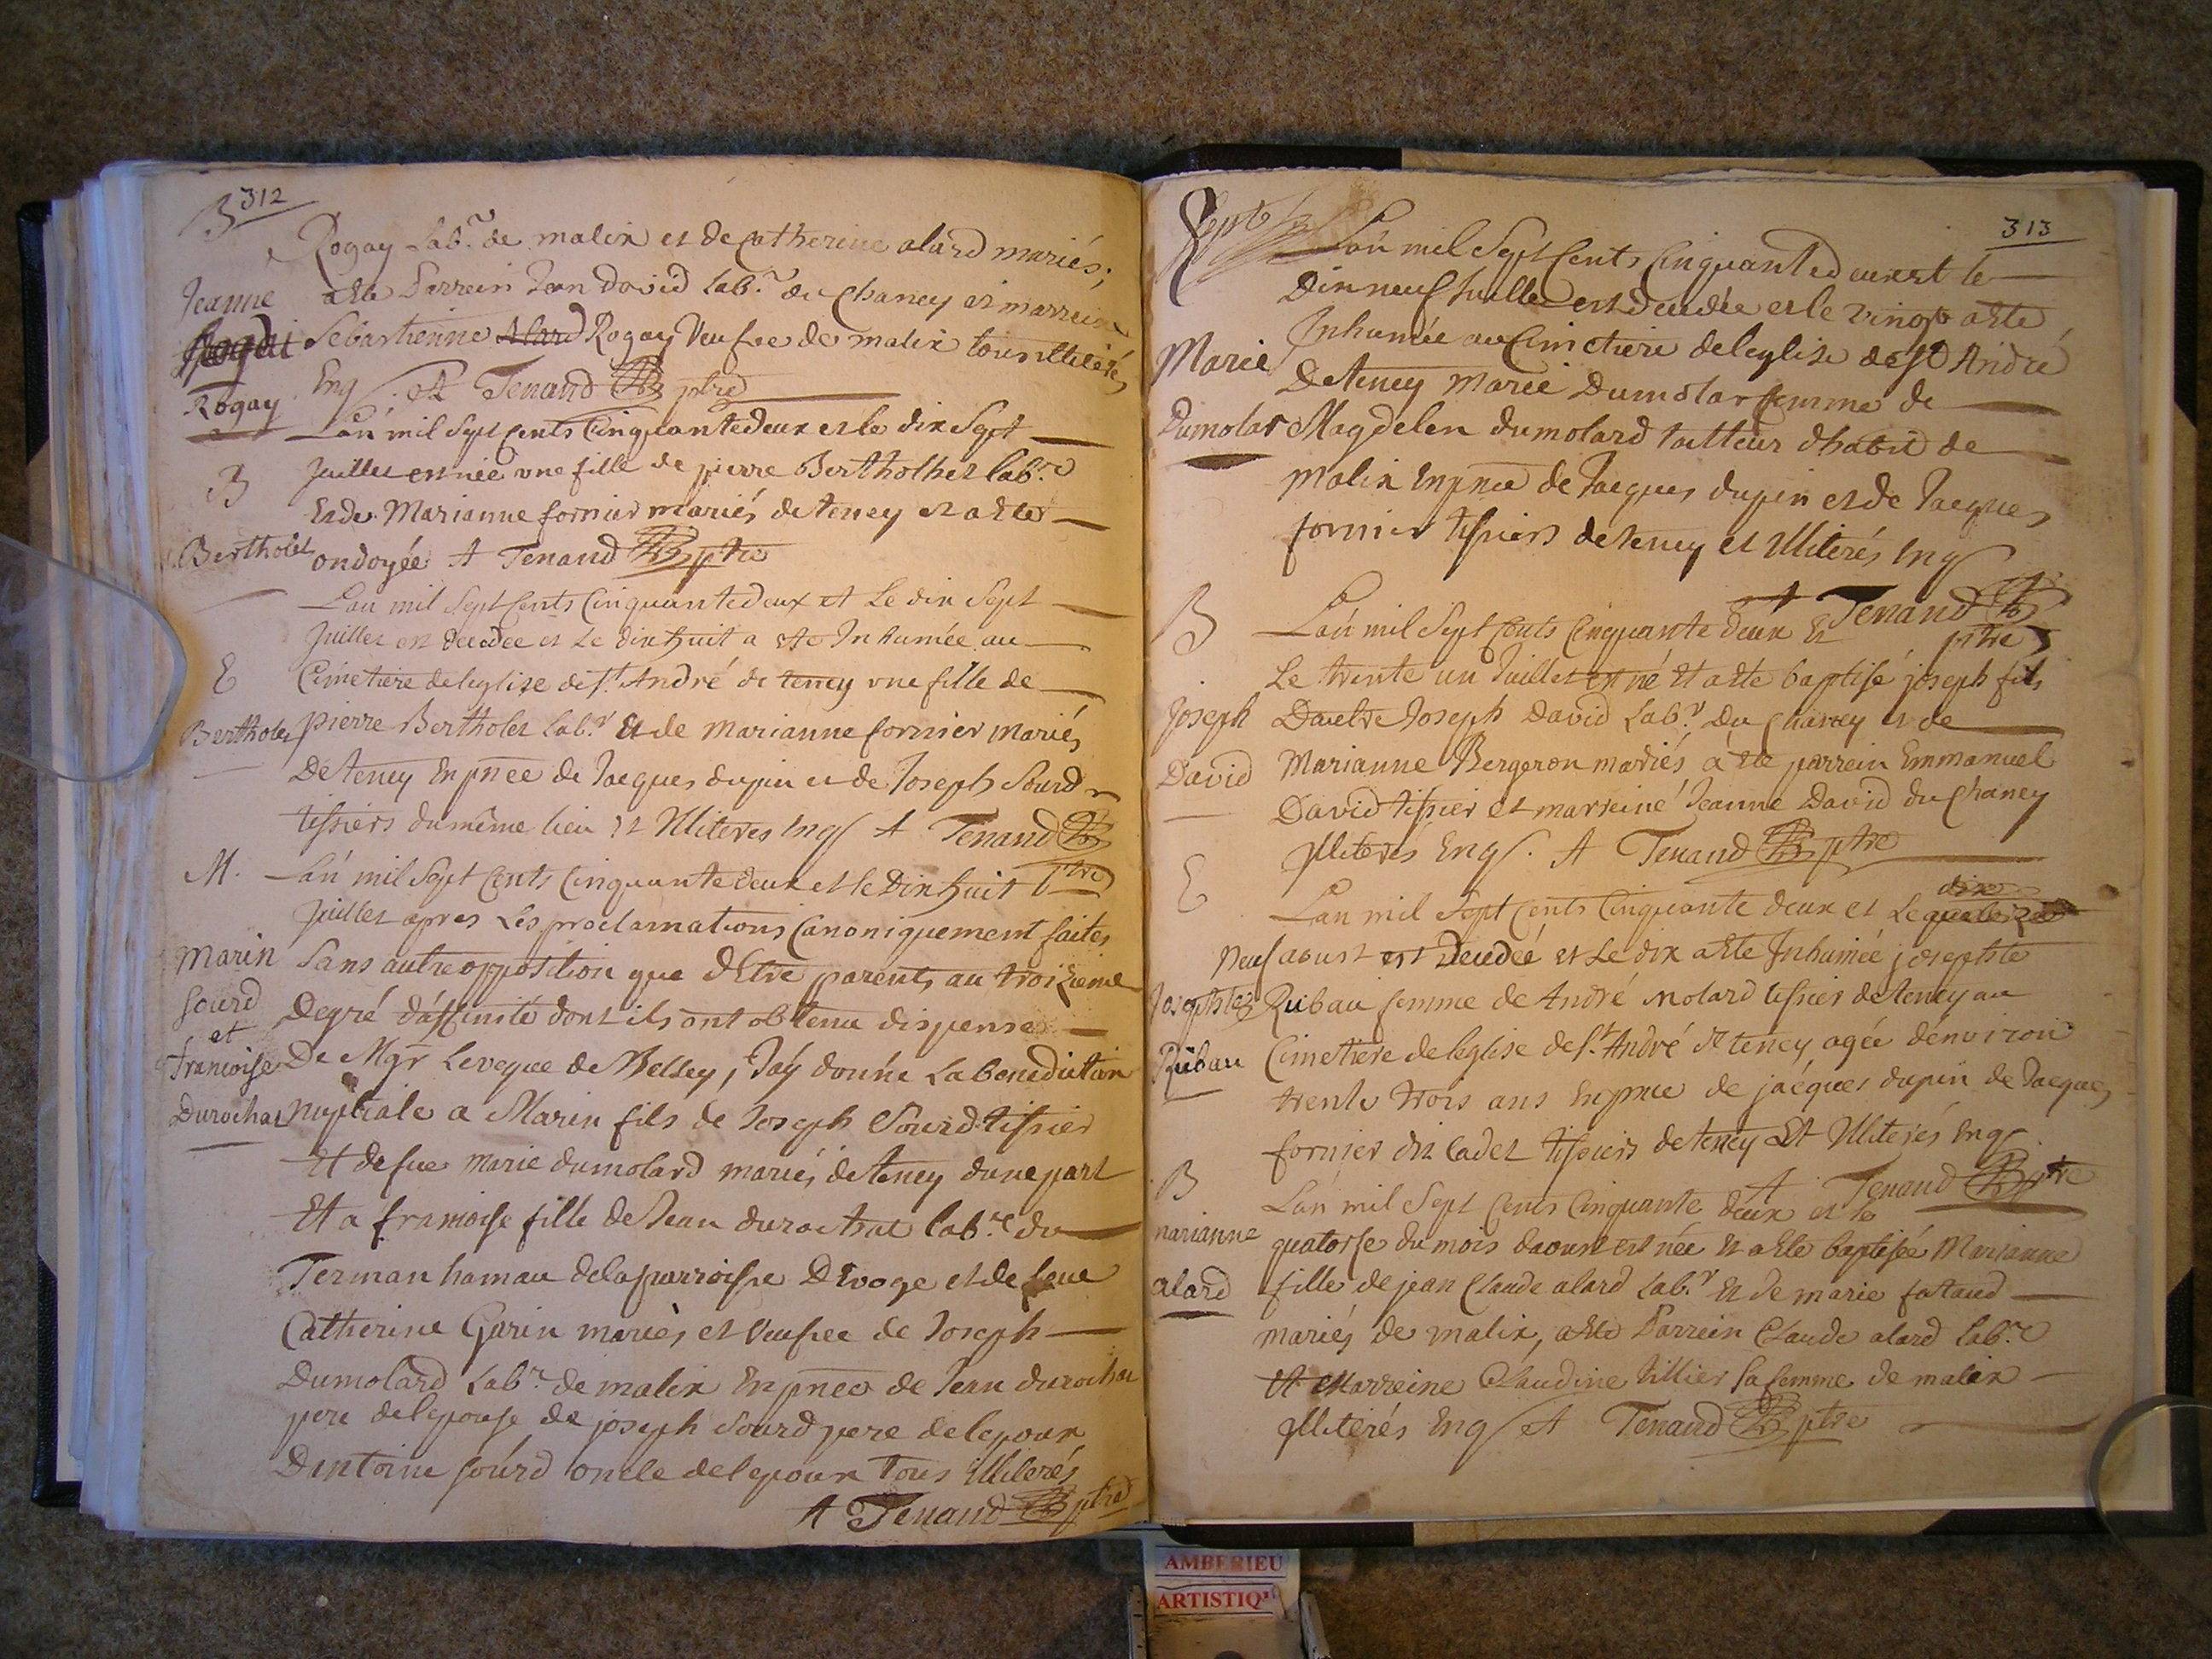 B 312
Rogay Lab.r de malix et de Catherine alard mariés;
Jeanne
a ete Parrein Jean David lab.r du Chaney et marreine
Rogay
Sebastienne Alard Rogay Veufve de malix tous illiterés
Enq A Tenand ptre
L'an mil Sept Cents Cinquante deux et le dix Sept
B
Juillet est née une fille de pierre Berthollet lab.r
Et de Marianne fornier mariés de teney et a ete
Bertholet
ondoyée A Tenand ptre
L'an mil Sept Cents Cinquante deux et Le dix Sept
Juillet est decedée et Le dix huit a ete Inhumée au
E
Cimetiere de leglise de St André de teney une fille de
Bertholet
pierre Bertholet lab.r Et de Marianne fornier mariés
De teney En pnce de Jacques dupin et de Joseph Sourd
tissiers du même lieu et Illiteres Enq A Tenand
ptre
M.
L'an mil Sept Cents Cinquante deux et le Dix huit
Juillet apres Les proclamations Canoniquement faites
Marin
Sans autre opposition que d'Etre parents au troizieme
Sourd
Degré d'affinité dont ils ont obtenu dispense
et
francoise
De Mgr Leveque de Belley, J'ay donné La benediction
Durochat
nuptiale a Marin fils de Joseph Sourd tissier
Et de fue Marie dumolard mariés de teney dune part
Et a francoise fille de Jean durochat lab.r du
Terman hamau de la parroisse D Evoge et de feue
Catherine Garin mariés et Veufve de Joseph
Dumolard Lab.r de malix En pnce de Jean durochat
pere de lepouse de joseph Sourd pere de lepoux
Dantoine sourd oncle de lepoux Tous illiterés
A Tenand ptre
313
L'an mil Sept Cents Cinquante deux et le
Dix neuf Juillet est decedée et le vingt a ete
Inhumée au Cimetiere de leglise de St André
Marie
De teney Marie Dumolar femme de
Dumolar
Magdelen dumolard tailleur dhabit de
Malix En pnce de Jacques dupin et de Jacques
fornier tissiers de teney et Illiterés Enq
A Tenand
ptre
B
L'an mil Sept Cents Cinquante deux Et
Le trente un Juillet est né Et a ete baptisé joseph fils
Joseph
Dautre Joseph David Lab.r Du Chaney et de
David
Marianne Bergeron mariés a ete parrein Emmanuel
David tissier et marreine Jeanne David du Chaney
Illiterés Enq. A Tenand ptre
E
L'an mil Sept Cents Cinquante deux et Le quatorze
dix
neuf aoust est decedée et Le dix a ete Inhumée josephte
Josephte
Rubau femme de André molard tissier de teney au
Rubau
Cimetiere de leglise de St André de teney agée d'environ
trente trois ans En pnce de jacques dupin de Jacques
fornier dit Cadet tissiers de teney Et Illiterés Enq
A Tenand ptre
B
L'an mil Sept Cents Cinquante deux et le
marianne
quatorse du mois daoust est née et a ete baptisée Marianne
alard
fille de jean Claude alard Lab.r Et de marie fataud
mariés de malix, a ete Parrein Claude alard lab.r
Et Marreine Claudine tillier sa femme de malix
Illiterés Enq A Tenand ptre
AMBERIEU
ARTISTIQ